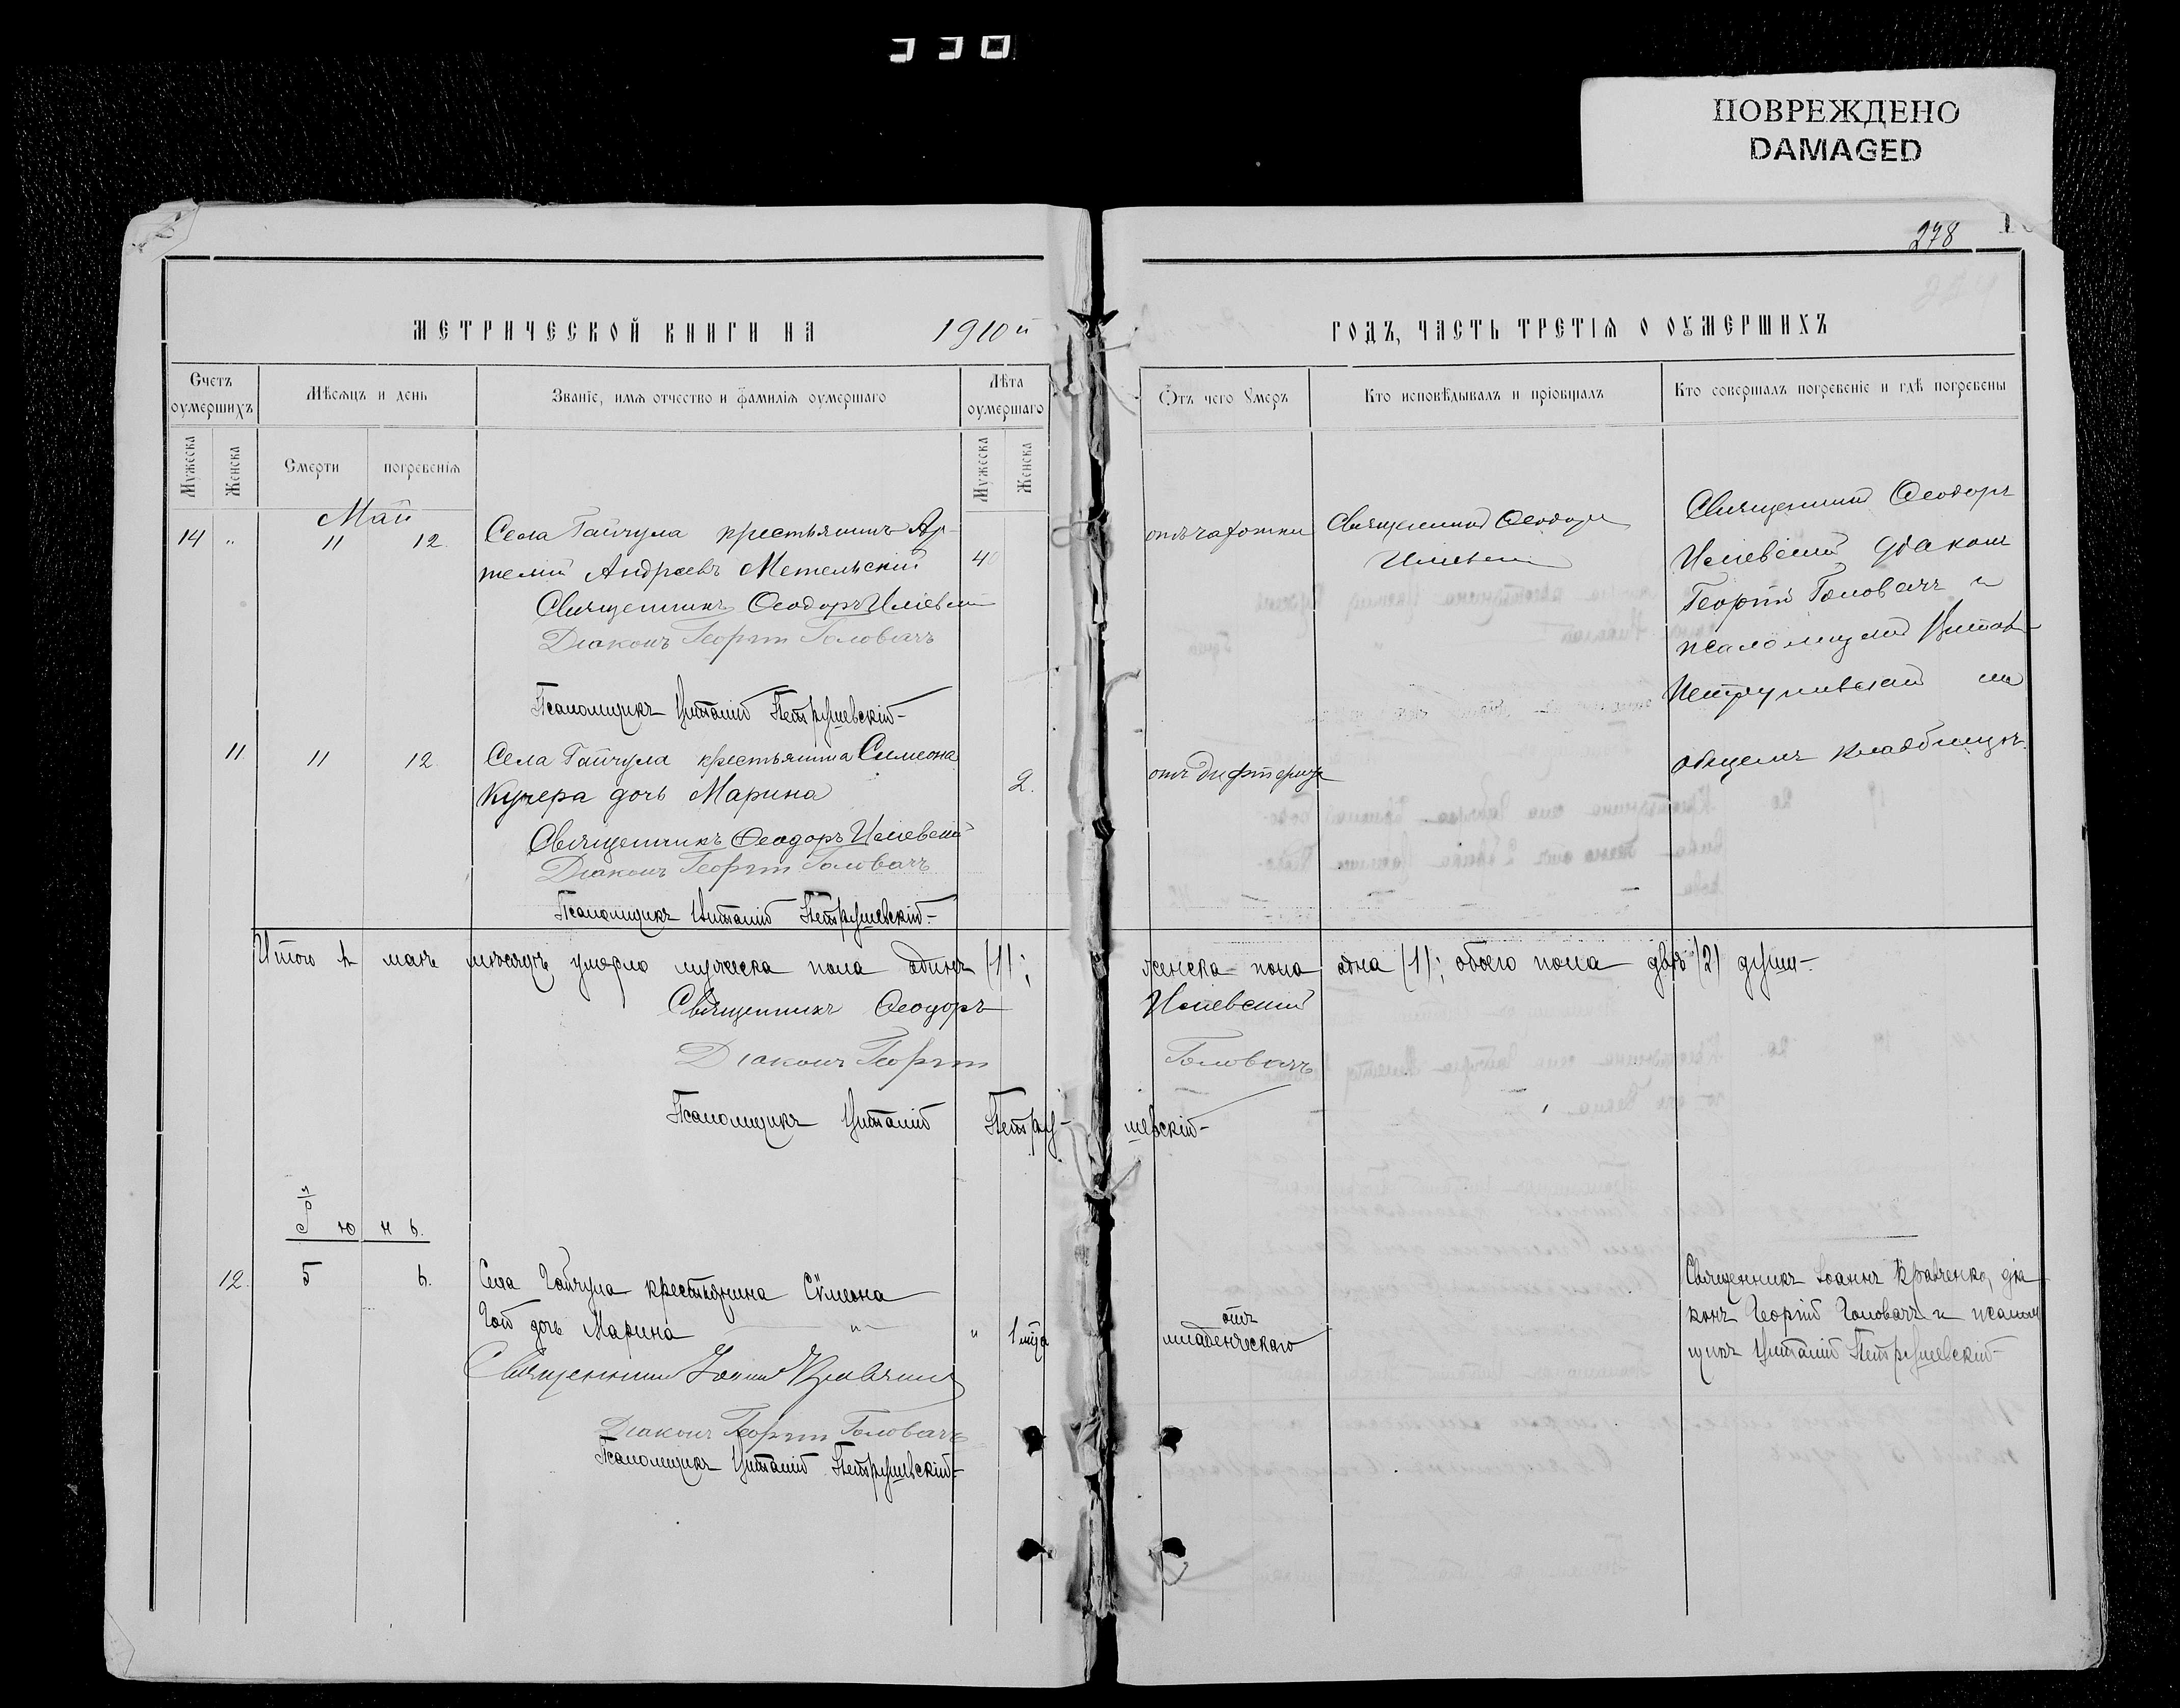 ПОВРЕЖДЕНО
DAMAGED
278
МЕТРИЧЕСКОЙ КНИГИ НА 1910й
ГОДЪ, ЧАСТЬ ТРЕТІѦ О ОУМЕРШИХЪ
Счетъ оумершихъ
Мѣсѧцъ и день
Званіе, имѧ отчество и фамиліѧ оумершаго
Лѣта оумершаго
Ѿтъ чего Умеръ
Кто исповѣдывалъ и пріобщалъ
Кто совершалъ погребеніе и гдѣ погребены
Мужеска
Женска
Смерти
погребеніѧ
Мужеска
Женска
Май
14 " 11 12 Села Гайчула крестьянинъ Ар-
темій Андреевъ Метельскій 40
Священникъ Ѳеодоръ
Діаконъ Георгій Головачъ
Псаломщикъ Виталій Петрушевскій
отъ чахотки
Священник Ѳеодоръ
Священник Ѳеодоръ
діаконъ
Георгій Головачъ и
псаломщик Витал
Петрушевский на
общемъ кладбищѣ.
11 11 12 Села Гайчула крестьянина Симеона
Кучера дочь Марина 2.
Священникъ Ѳеодоръ
Діаконъ Георгій Головачъ
Псаломщикъ Виталій Петрушевскій
отъ дифтерита
Итого в маѣ мѣсяцѣ умерло мужеска пола одинъ (1); женска пола одна (1); обоего пола двѣ (2) души.
Священникъ Ѳеодоръ
Діаконъ Георгій Головачъ
Псаломщикъ Виталій Петру-шевскій
Іюнь.
12. 5 6. Села Гайчула крестьянина Сѵмеона
Гой дочь Марина " " 1 мѣсяца
Священник Іоанн Кравченко
Діаконъ Георгій Головачъ
Псаломщикъ Виталій Петрушевскій
отъ
младенческаго
Священникъ Іоаннъ Кравченко, діа
конъ Георгій Головачъ и псалом
щикъ Виталій Петрушевскій